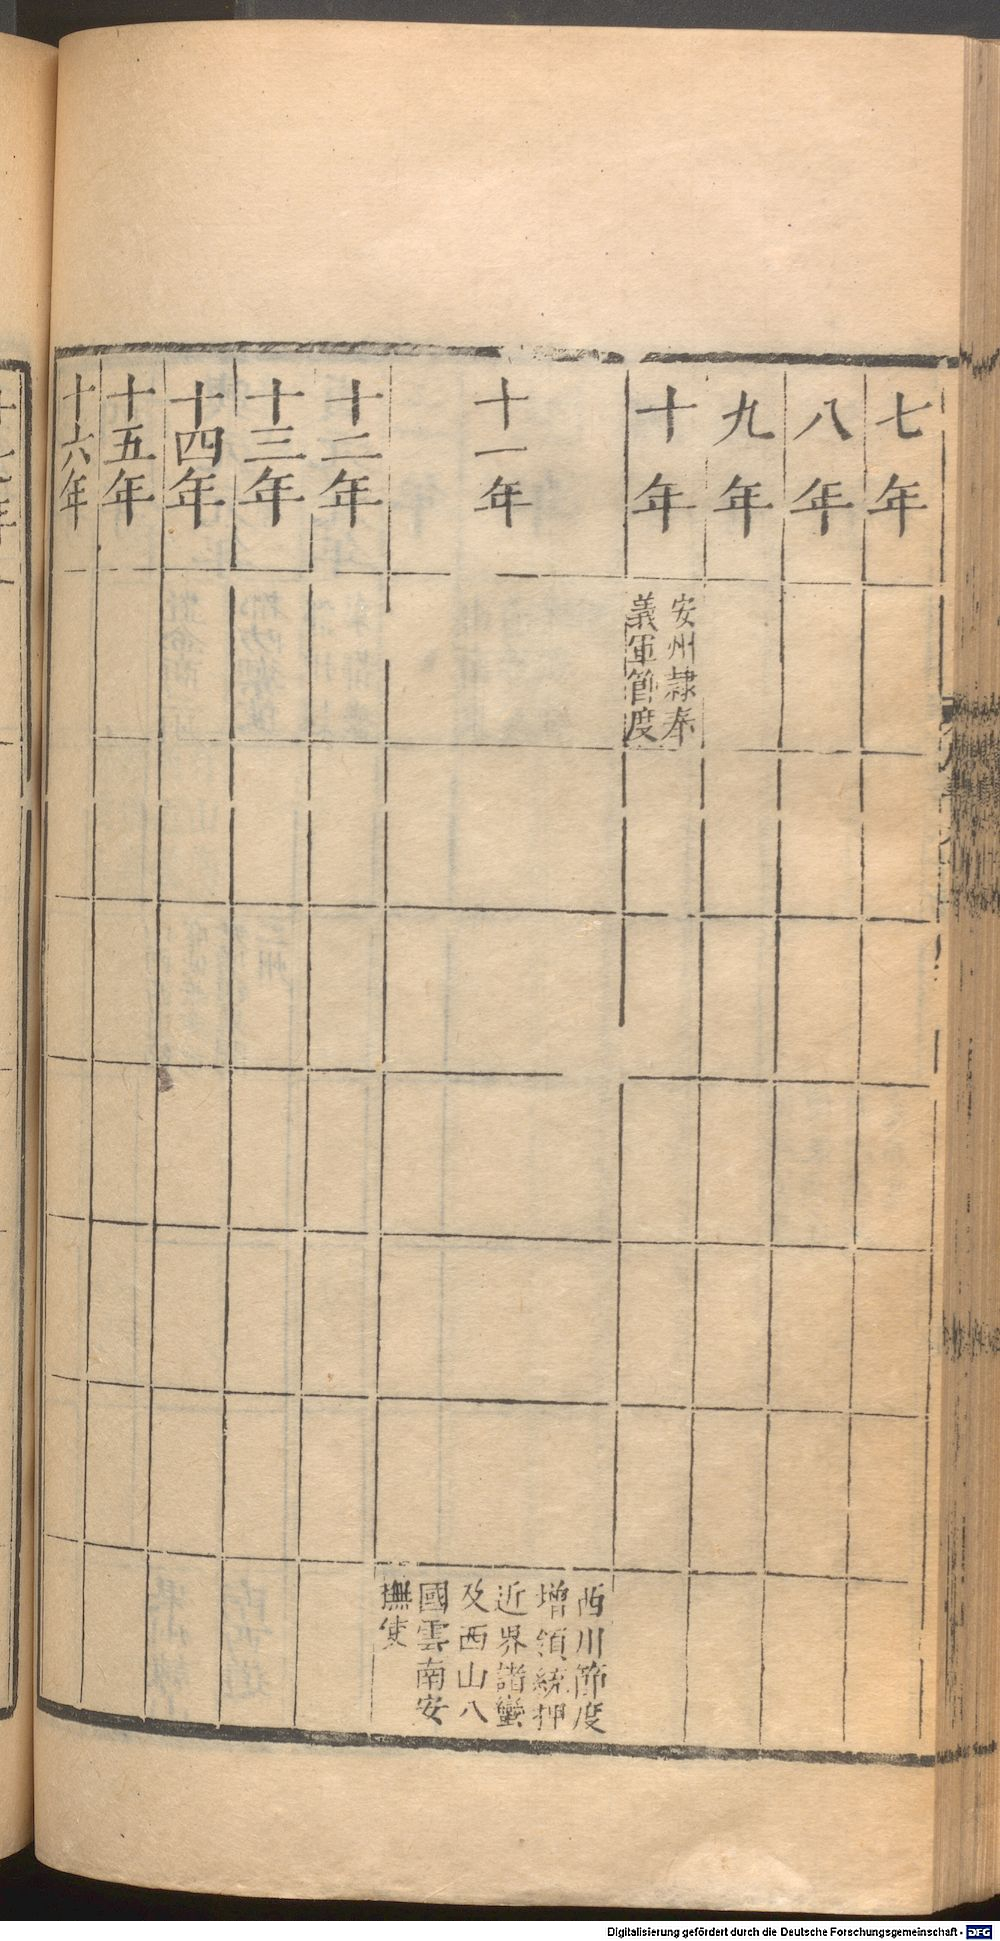 七年
八年
九年
十年
安州隷奉
義軍管度
十一年
西川節度
增領統押
近界諸蠻
及西山八
國雲南安
撫使
十二年
十三年
十四年
十五年
十六年
Digitalisierung gefördert durch die Deutsche Forschungsgemeinschaft - DFG